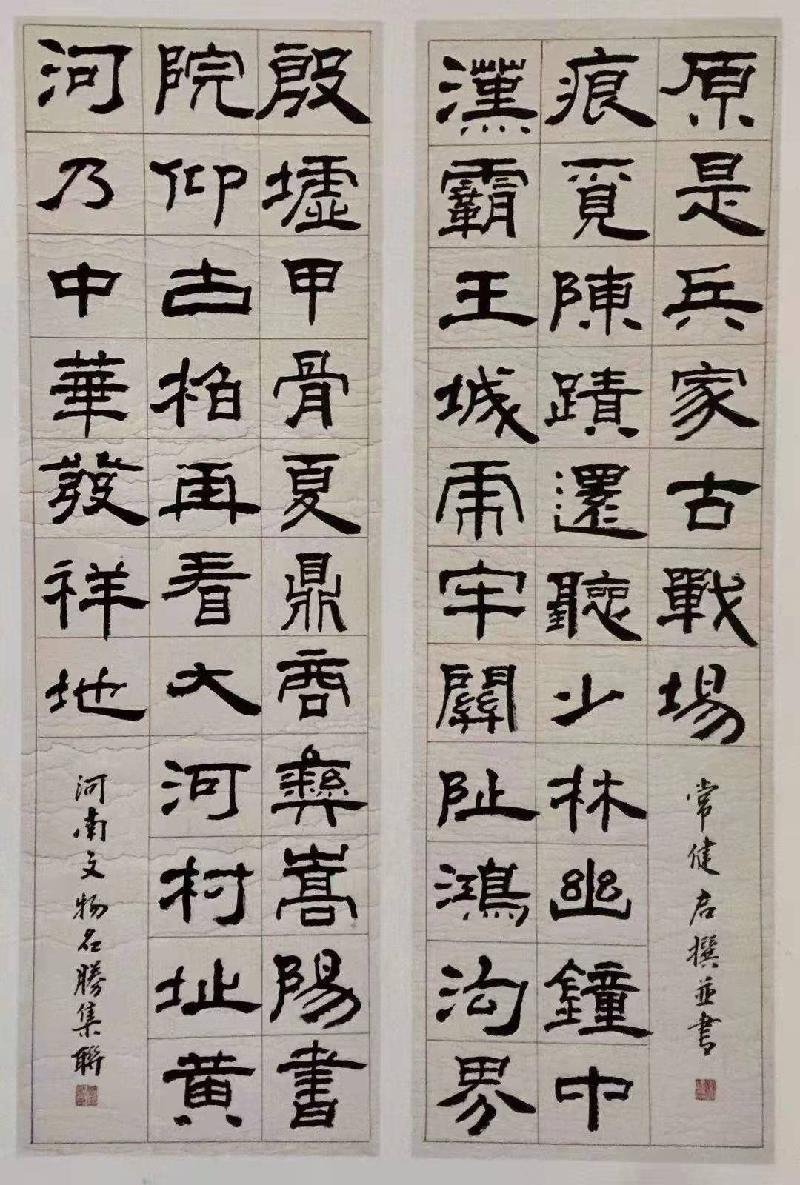 殷墟甲骨夏鼎商彝嵩陽書
院仰古柏再看大河村址黄
河乃中華發祥地
河南文物名勝集聯
漢霸王城虎牢關阯鴻溝界
痕覓陳蹟還聽少林幽鐘中
原是兵家古戰場
常健君撰並書